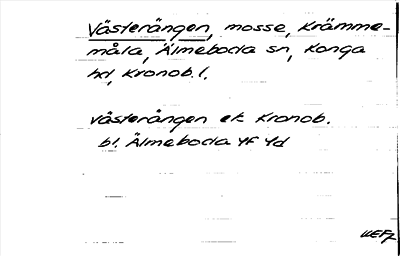 Västerängen, mosse, Krämme-
måla, Älmeboda sn, Konga
hd, Kronob. l.
Västerängen ek Kronob.
bl. Älmeboda 4F 4d